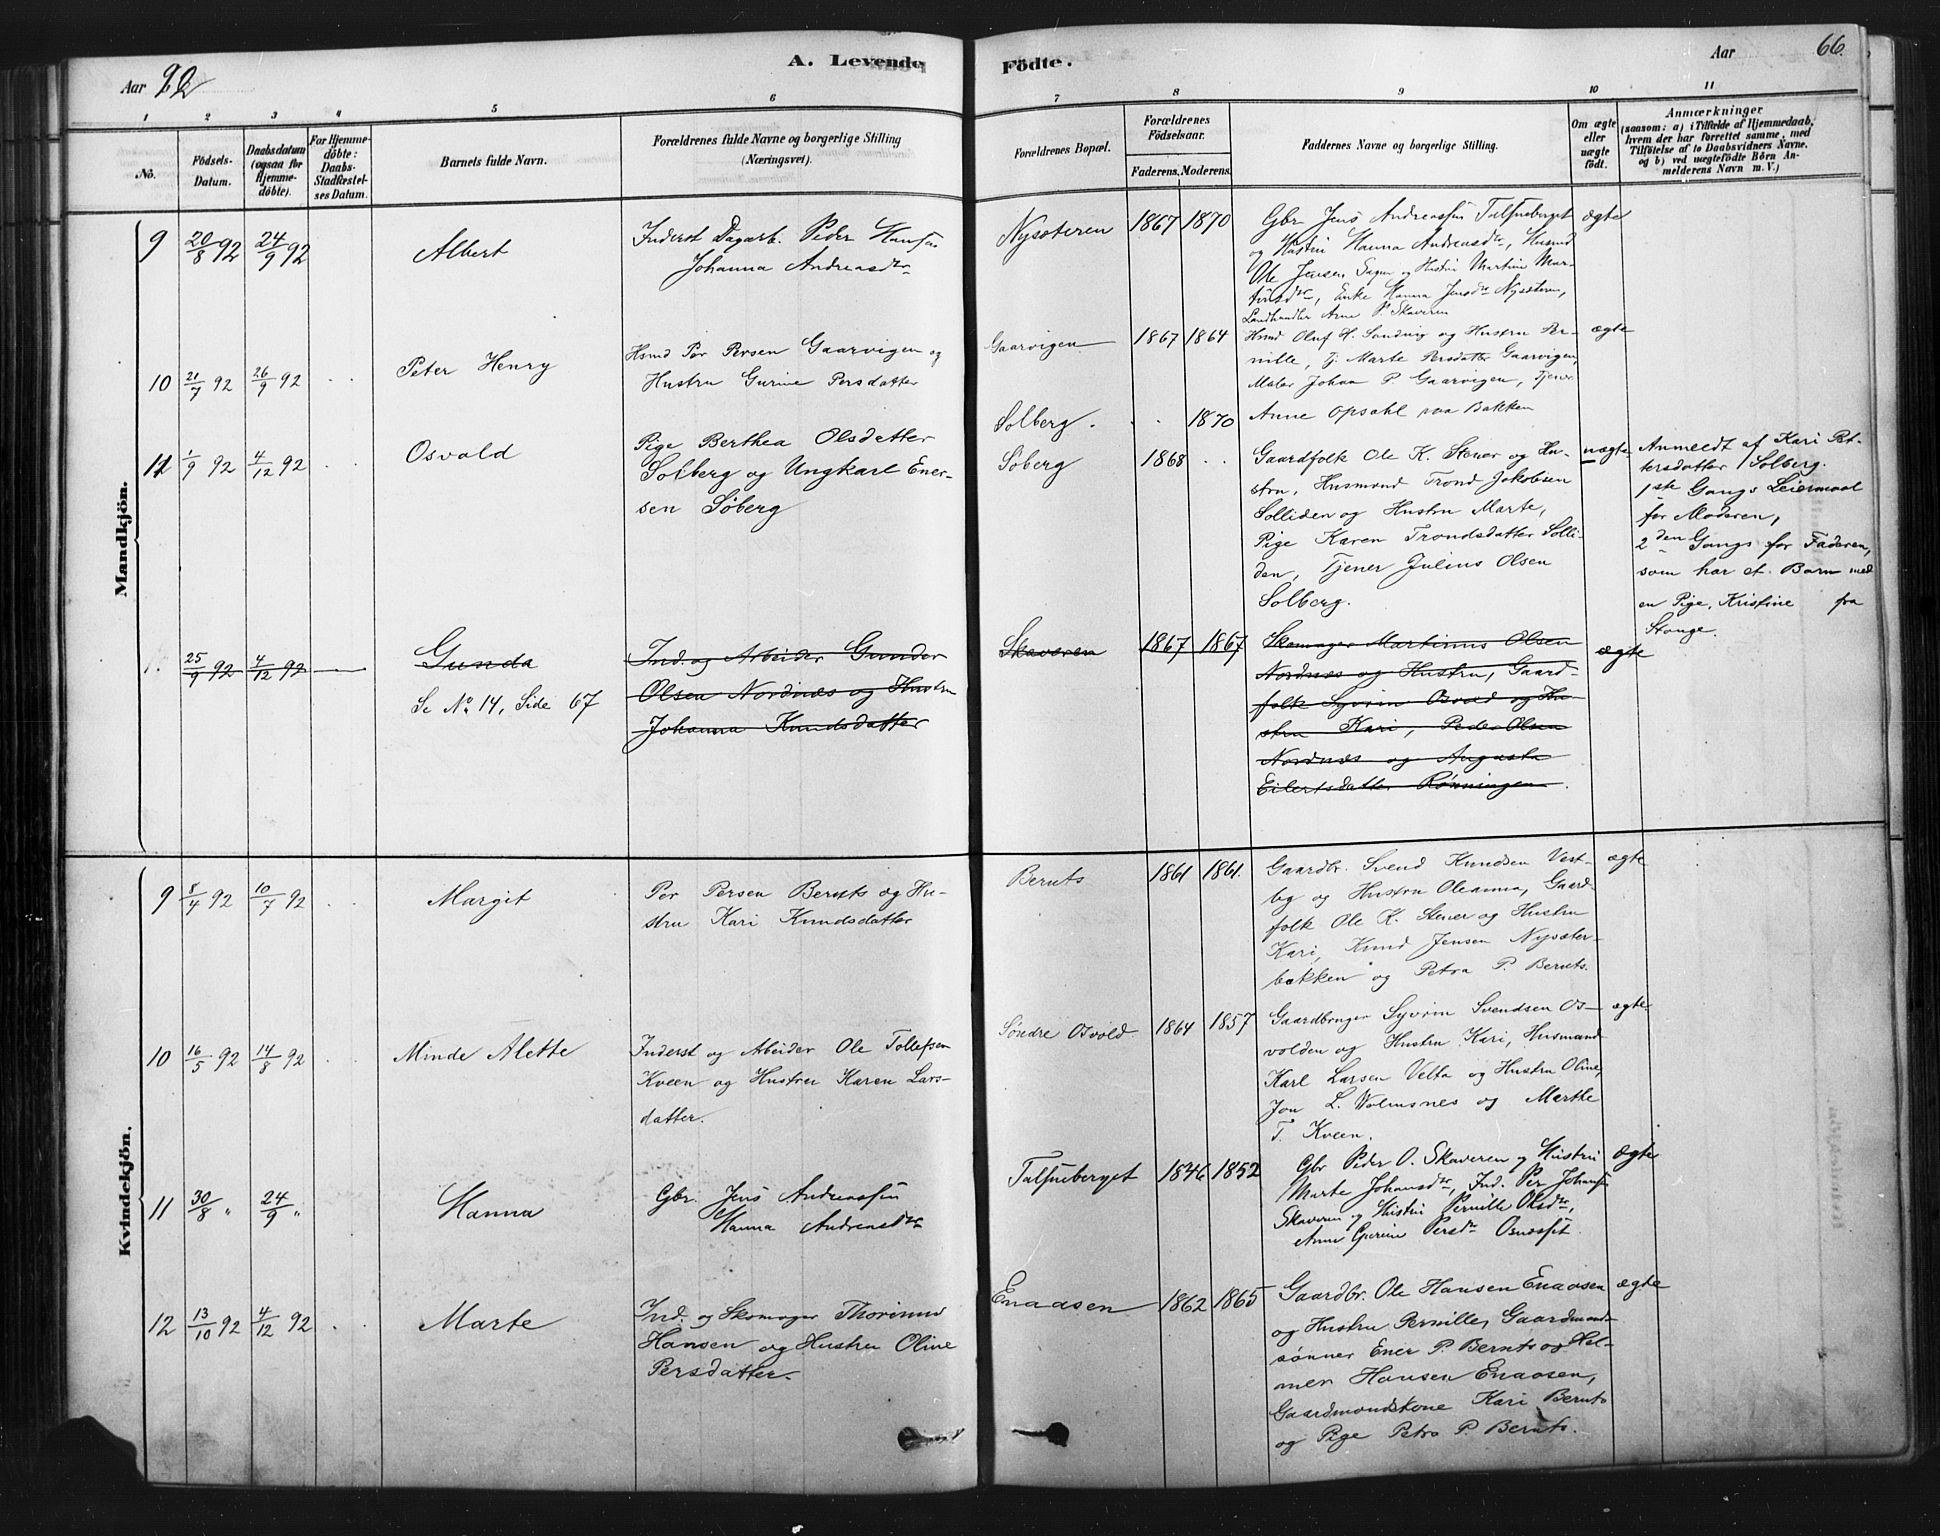 Aar 92
A. Levende
Födte.
Aar
66.
1
2
3
4
5
6
7
8
9
10
11
No.
Födsels-
Datum.
Daabsdatum
(ogsaa for
Hjemme-
döbte).
For Hjemme-
döbte:
Daabs-
Stadfæstel-
ses Datum.
Barnets fulde Navn.
Forældrenes fulde Navne og borgerlige Stilling
(Næringsvei).
Forældrenes Bopæl.
Forældrenes
Födselsaar.
Faderens.
Moderens.
Faddernes Navne og borgerlige Stilling.
Om ægte
eller
uægte
födt.
Anmærkninger
(saasom: a) i Tilfælde af Hjemmedaab,
hvem der har forrettet samme, med
Tilföielse af to Daabsvidners Navne,
og b) ved uægtefödte Börn An-
melderens Navn m. V.)
Mandkjön.
9
20/8 92
24/9 92
Albert
Inderst Dagarb. Peder Hansen
Johanna Andreasdtr
Nysæteren
1867
1870
Gbr Jens Andreassen
og Hustru Hanna Andreasdtr, Husmd
Ole Jensen og Hustru Martine Mar-
tinsdtr, Enke Hanna Jensdtr Nysæteren,
Landhandler Arne P. Skaveren
ægte
10
21/7 92
26/9 92
Peter Henry
Hsmd Per Persen Gaarvigen og
Hustru Gurine Persdatter
Gaarvigen
1867
1864
Hsmd Oluf H. Sandvig og Hustru Per-
nille, Tj. Marte Persdatter Gaarvigen,
Maler Johan P. Gaarvigen, Tjener
Anne Opsahl paa Bakken
ægte
11
1/9 92
4/12 92
Osvald
Pige Berthea Olsdatter
Solberg og Ungkarl Ener-
sen Söberg
Solberg.
1870
Söberg
1868
Gaardfolk Ole K. Stener og Hu-
stru, Husmand Trond Jakobsen
Solliden og Hustru Marte,
Pige Karen Trondsdatter Solli-
den, Tjener Julius Olsen
Solberg.
uægte
Anmeldt af Kari Pet-
tersdatter Solberg.
1ste Gangs Leiermaal
for Moderen,
2den Gangs for Faderen,
som har et Barn med
en Pige, Kristine fra
Stange.
25/9 92
4/12 92
Gunda
Se No 14, Side 67
Ind. og Arbeider Gunder
Olsen Nordnæs og Hustru
Johanna Knudsdatter
Skaveren
1867
1867
Skomager Martinus Olsen
Nordnæs og Hustru, Gaard-
folk Syvrin Osvold og Hu-
stru Kari, Peder Olsen
Nordnæs og Augusta
Eilertsdatter Rönningen.
ægte
Kvindekjön.
9
8/4 92
10/7 92
Margit
Per Persen Bernts og Hu-
stru Kari Knudsdatter
Bernts
1861
1861.
Gaardbr. Svend Knudsen Vest-
by og Hustru Oleanna, Gaard-
folk Ole K. Stener og Hustru
Kari, Knud Jensen Nysæter-
bakken og Petra P. Bernts.
ægte
10
16/5 92
14/8 92
Minde Alette
Inderst og Arbeider Ole Tollefsen
Kveen og Hustru Karen Lars-
datter.
Söndre Osvold
1864
1857
Gaardbruger Syvrin Svendsen Os-
volden og Hustru Kari, Husmand
Karl Larsen Velta og Hustru Oline,
Jon L. Volmsnes og Marthe
T. Kveen.
ægte
11
30/8 "
24/9 "
Hanna
Gbr. Jens Andreassen
Hanna Andreasdtr
1846
1852
Gbr Peder O. Skaveren og Hustru
Marte Johansdtr, Ind. Per Johansen
Skaveren og Hustru Pernille Olsdtr,
Anne Gurine Persdtr
ægte
12
13/10 92
4/12 92
Marte
Ind. og Skomager Thorinus
Hansen og Hustru Oline
Persdatter.
Enaasen
1862
1865
Gaardbr. Ole Hansen Enaasen
og Hustru Pernille, Gaardmands-
sönner Ener P. Bernts og Hel-
mer Hansen Enaasen,
Gaardmandskone Kari Bernts
og Pige Petra P. Bernts.
ægte